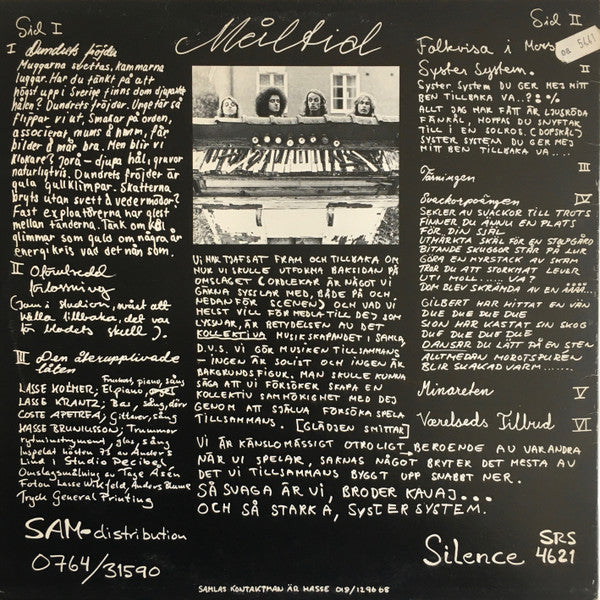 Måltid
Sid I
I Dundrets fröjder
Muggarna svettas, kammarna
luggar. Har du tänkt på att
högst upp i Sverige finns dom djupaste
hålen? Dundrets fröjder. Ungefär så
flippar vi ut. Smakar på orden,
associerat, mums å hmm, får
bilder å mår bra. Men blir vi
klokare? Jorå - djupa hål, gravar
naturligtvis. Dundrets fröjder är
gula gullklimpar. Skatterna
bryts utan svett å vedermödor?
Fast exploatörerna har glest
mellan tänderna. Tänk om kål
glimmar som guld om några år
energikris vad det nån som.
II Oförutsedd
förlossning
(Jam i studion, svårt att
hålla tillbaka, det var
för blodets skull).
III Den återupplivade
låten
LASSE HOLMER; Elpiano, piano, sång
LASSE KRANTZ; Bas, sång
COSTE APETREA; Gitarrer, sång
HASSE BRUNIUSSON; Trummor
rytminstrument, glas, sång
Inspelat hösten 73 av Anders
Lind i Studio Decibel
Omslagsmålning av Tage Åsén
Foton: Lasse Wikfeld, Anders Bume
Tryck General Printing
SAM-distribution
0764/31590
VI HAR TJAFSAT FRAM OCH TILLBAKA OM
HUR VI SKULLE UTFORMA BAKSIDAN PÅ
OMSLAGET (ORDLEKAR ÄR NÅGOT VI
GÄRNA SYSSLAR MED, BÅDE PÅ OCH
NEDANFÖR SCENEN) OCH VAD VI
HELST VILL FÖRMEDLA TILL DEJ SOM
LYSSNAR, ÄR BETYDELSEN AV DET
KOLLEKTIVA MUSIKSKAPANDET I SAMLA.
D.V.S. VI GÖR MUSIKEN TILLSAMMANS
- INGEN ÄR SOLIST OCH INGEN ÄR
BAKGRUNDSFIGUR. MAN SKULLE KUNNA
SÄGA ATT VI FÖRSÖKER SKAPA EN
KOLLEKTIV SAMHÖRIGHET MED DEJ
GENOM ATT SJÄLVA FÖRSÖKA SPELA
TILLSAMMANS. [GLÄDJEN SMITTAR]
VI ÄR KÄNSLOMÄSSIGT OTROLIGT BEROENDE AV VARANDRA
NÄR VI SPELAR, SAKNAS NÅGOT BRYTER DET MESTA AV
DET VI TILLSAMMANS BYGGT UPP SNABBT NER.
SÅ SVAGA ÄR VI, BRODER KAVAJ...
OCH SÅ STARKA, SYSTER SYSTEM.
Sid II
Folkvisa i Mors
OR 5661
Syster System. II
SYSTER SYSTEM DU GER MEJ MITT
BEN TILLBAKA VA..?:%
ALLT JAG HAR FÅTT ÄR LJUSRÖDA
FÄNKÅL, HOPPAS DU SNYFTAR
TILL I EN SOLROS. (DOPSKÅL)
SYSTER SYSTEM DU GER MEJ
MITT BEN TILLBAKA VA....
Värningen III
Svackorpoängen IV
SEKLER AV SVACKOR TILL TROTS
FINNER DU ÄNNU EN PLATS
FÖR DIN SJÄL
UTMÄRKTA SKÄL FÖR EN STEPGÅRD
BITANDE SKUGGOR STÅR PÅ LUR
GÖRA EN MYRSTACK AV SKAM
TROR DU ATT STORMAT LEVER
UT! MOLL..... VA?
DOM BLEV SKRÄMDA AV EN
GILBERT HAR HITTAT EN VÄN
DUE DUE DUE DUE
SION HAR KASTAT SIN SKOG
DUE DUE DUE DUE
DANSAR DU LÄTT PÅ EN STEN
ALLTMEDAN MOROTSPUREN
BLIR SKALLAD VARM.......
Minareten V
Værelseds Tilbud VI
Silence SRS
4621
SAMLAS KONTAKTMAN ÄR HASSE 019/129668